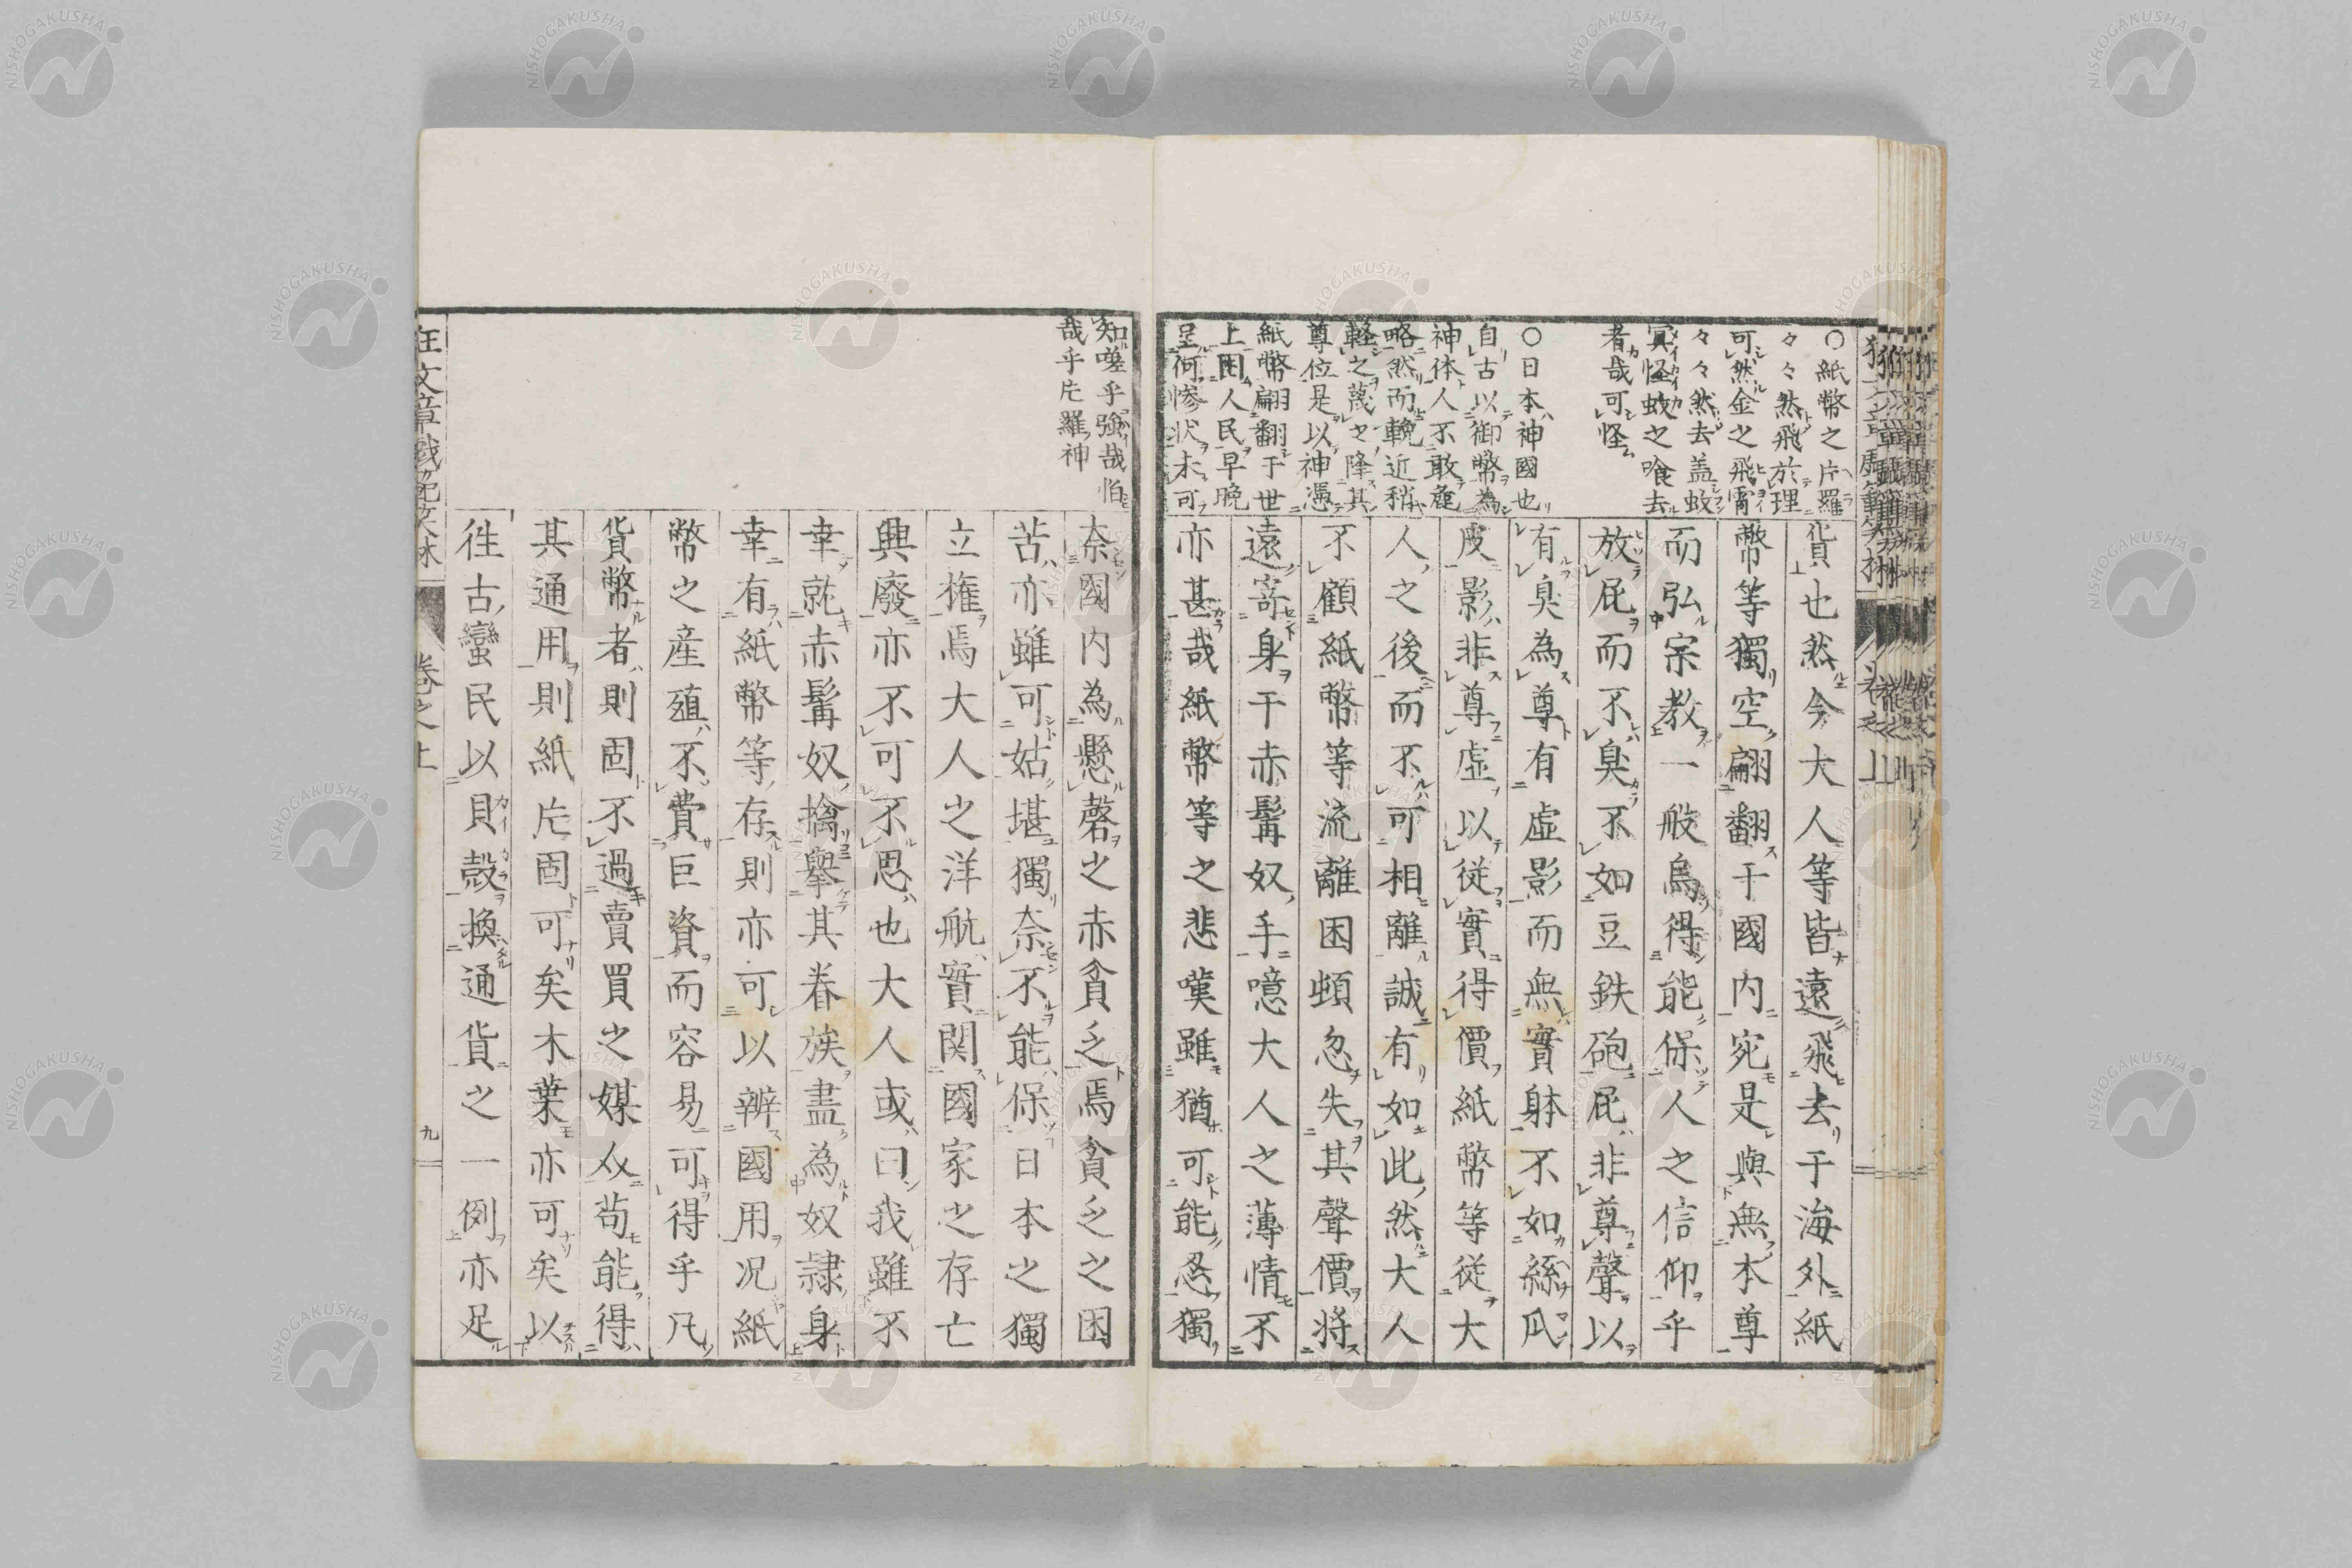 ○紙幣之片羅
々々然飛於理
可然金之飛霄
々々然去盖蚊
冥怪蚊之喰去
者哉可怪
○日本神國也
自古以御幣為
神体人不敢麁
略然而輓近稍
軽之蔑之降其
尊位是以神憑
紙幣翩翻于世
上困人民早晩
呈何惨状未可
貨也然今大人等皆遠飛去于海外紙
幣等獨空翩翻于國内宛是與無本尊
而弘宗教一般烏得能保人之信仰乎
放屁而不臭不如豆鉄砲屁非尊聲以
有臭為尊有虚影而無實躰不如絲瓜
皮影非尊虚以従實得價紙幣等従大
人之後而不可相離誠有如此然大人
不顧紙幣等流離困頓忽失其聲價將
遠寄身于赤髯奴手噫大人之薄情不
亦甚哉紙幣等之悲嘆雖猶可能忍獨
知嗟乎強哉怕
哉乎片羅神
奈國内為懸磬之赤貧乏焉貧乏之困
苦亦雖可姑堪獨奈不能保日本之獨
立権焉大人之洋航實関國家之存亡
興廢亦不可不思也大人或曰我雖不
幸就赤髯奴擒擧其眷族盡為奴隷身
幸有紙幣等存則亦可以辨國用况紙
幣之産殖不費巨資而容易可得乎凡
貨幣者則固不過賣買之媒介苟能得
其通用則紙片固可矣木葉亦可矣以
往古蠻民以貝殻換通貨之一例亦足
狂文章戯範文林
巻之上
九